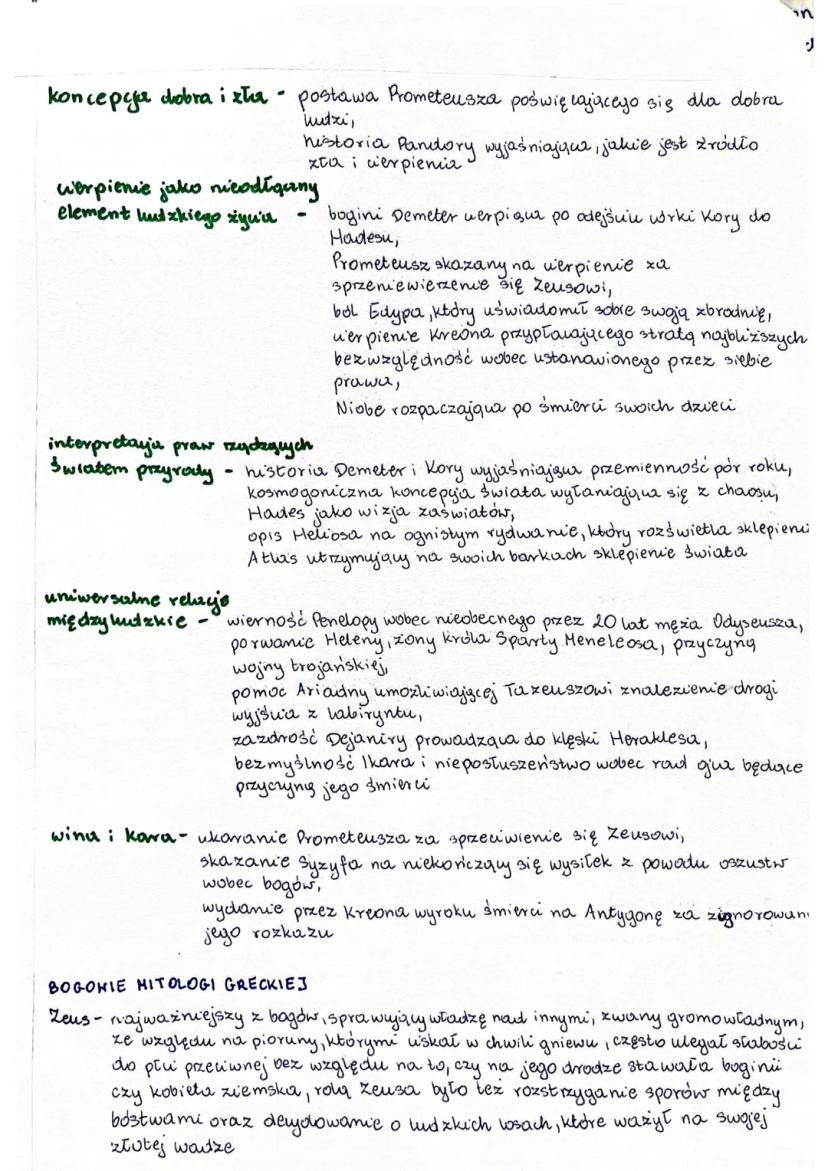 koncepcja dobra i zła - postawa Prometeusza poświęcającego się dla dobra
ludzi,
historia Pandory wyjaśniająca, jakie jest źródło
zła i cierpienia
cierpienie jako nieodłączny
element ludzkiego życia - bogini Demeter cierpiąca po odejściu córki Kory do
Hadesu,
Prometeusz skazany na cierpienie za
sprzeniewierzenie się Zeusowi,
ból Edypa, który uświadomił sobie swoją zbrodnię,
cierpienie Kreona przypłacającego stratą najbliższych
bezwzględność wobec ustanowionego przez siebie
prawa,
Niobe rozpaczająca po śmierci swoich dzieci
interpretacja praw rządzących
światem przyrody - historia Demeter i Kory wyjaśniająca przemienność pór roku,
kosmogoniczna koncepcja świata wyłaniająca się z chaosu,
Hades jako wizja zaświatów,
opis Heliosa na ognistym rydwanie, który rozświetla sklepieni
Atlas utrzymujący na swoich barkach sklepienie świata
uniwersalne relacje
międzyludzkie - wierność Penelopy wobec nieobecnego przez 20 lat męża Odyseusza,
porwanie Heleny, żony króla Sparty Meneleosa, przyczyną
wojny trojańskiej,
pomoc Ariadny umożliwiającej Tezeuszowi znalezienie drogi
wyjścia z labiryntu,
zazdrość Dejaniry prowadząca do klęski Heraklesa,
bezmyślność Ikara i nieposłuszeństwo wobec rad ojca będące
przyczyną jego śmierci
wina i kara - ukaranie Prometeusza za sprzeciwienie się Zeusowi,
skazanie Syzyfa na niekończący się wysiłek z powodu oszustw
wobec bogów,
wydanie przez Kreona wyroku śmierci na Antygonę za zignorowani
jego rozkazu
BOGOWIE MITOLOGI GRECKIEJ
Zeus - najważniejszy z bogów, sprawujący władzę nad innymi, zwany gromowładnym,
ze względu na pioruny, którymi ciskał w chwili gniewu, często ulegał słabości
do płci przeciwnej bez względu na to, czy na jego drodze stawała boginii
czy kobieta ziemska, rolą Zeusa było też rozstrzyganie sporów między
bóstwami oraz decydowanie o ludzkich losach, które ważył na swojej
złotej wadze